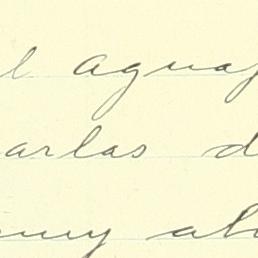 l aguaj
arlas d
muy ab